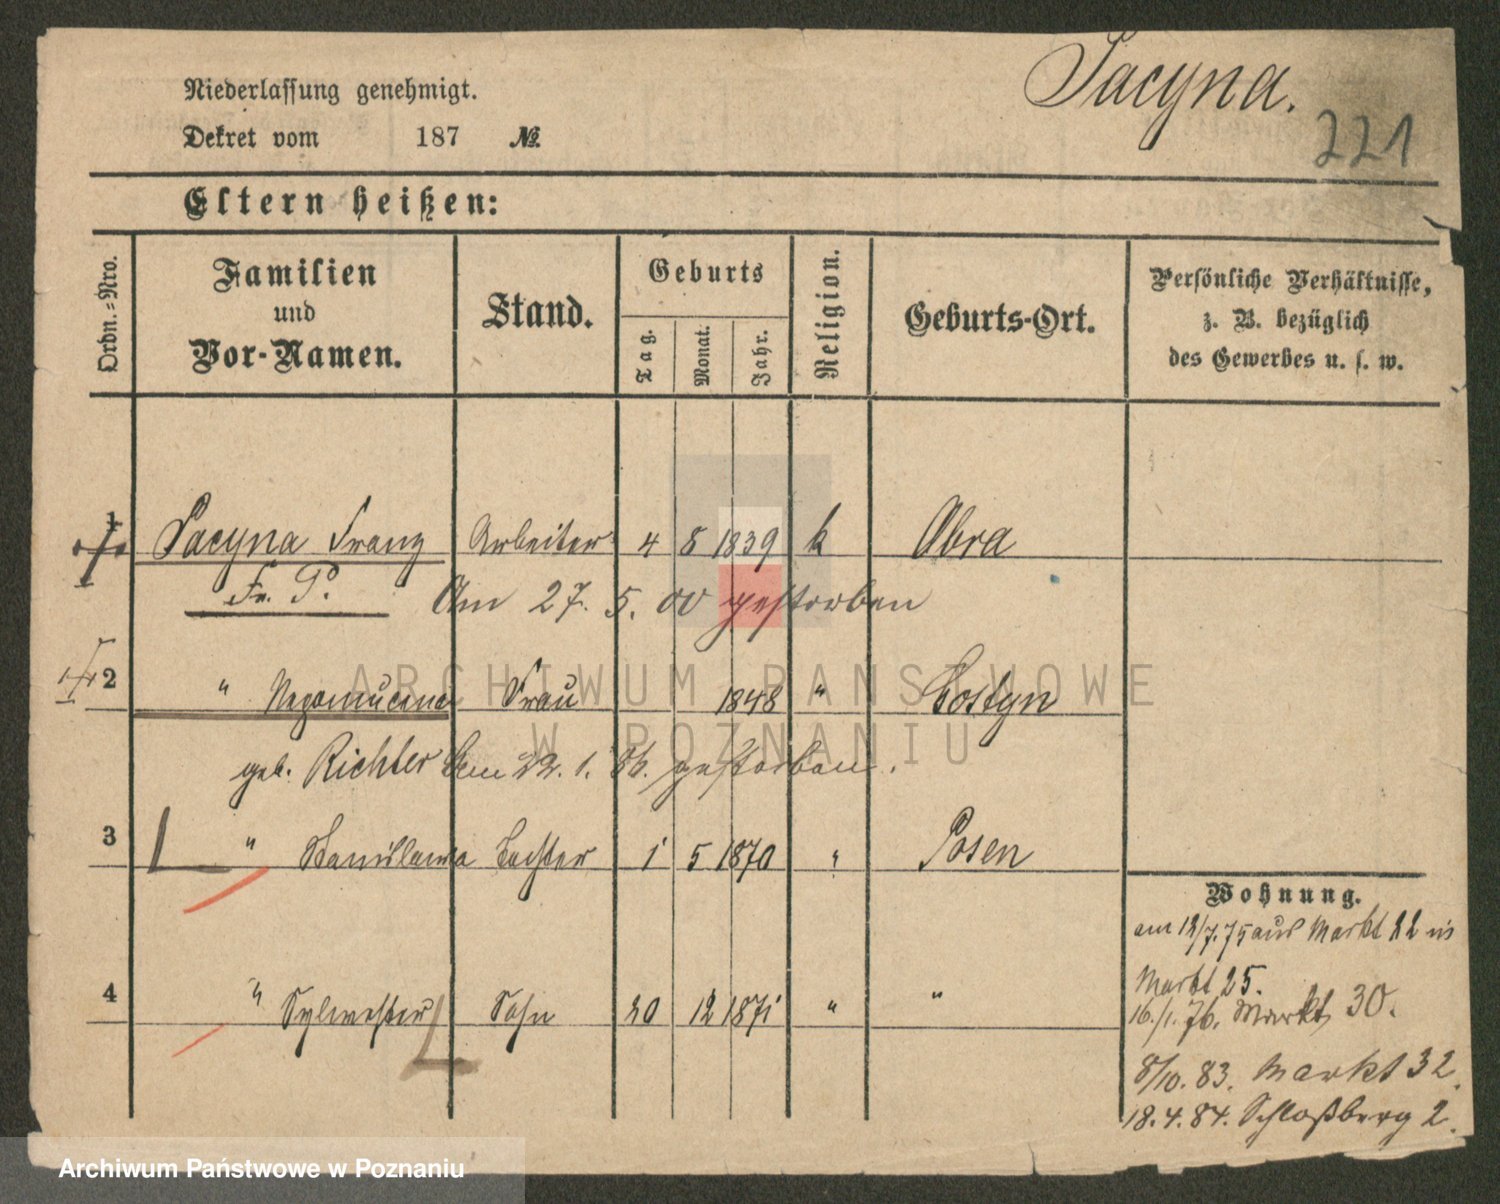 Niederlassung genehmigt.
Pacyna.
221
Dekret vom 187 №
Eltern heißen:
Ordn.-Nro.
Familien und Vor-Namen.
Stand.
Geburts
Tag.
Monat.
Jahr.
Religion.
Geburts-Ort.
Persönliche Verhältnisse,
z. B. bezüglich
des Gewerbes u. s. w.
1 Pacyna Franz Arbeiter 4 8 1839 k Obra
Fr. P. Am 27. 5. 00 gestorben
2 " Nepomucena Frau 1848 " Gostyn
geb. Richter Am 22. 1. 86. gestorben.
3 " Stanislawa Tochter 1 5 1870 " Posen
4 " Sylwester Sohn 20 12 1871 " "
Wohnung.
am 12/7. 75 aus Markt 22 in
Markt 25.
16./1. 76. Markt 30.
8/10. 83. Markt 32.
18.4.84. Schloßberg 2.
ARCHIWUM PAŃSTWOWE
W POZNANIU
Archiwum Państwowe w Poznaniu